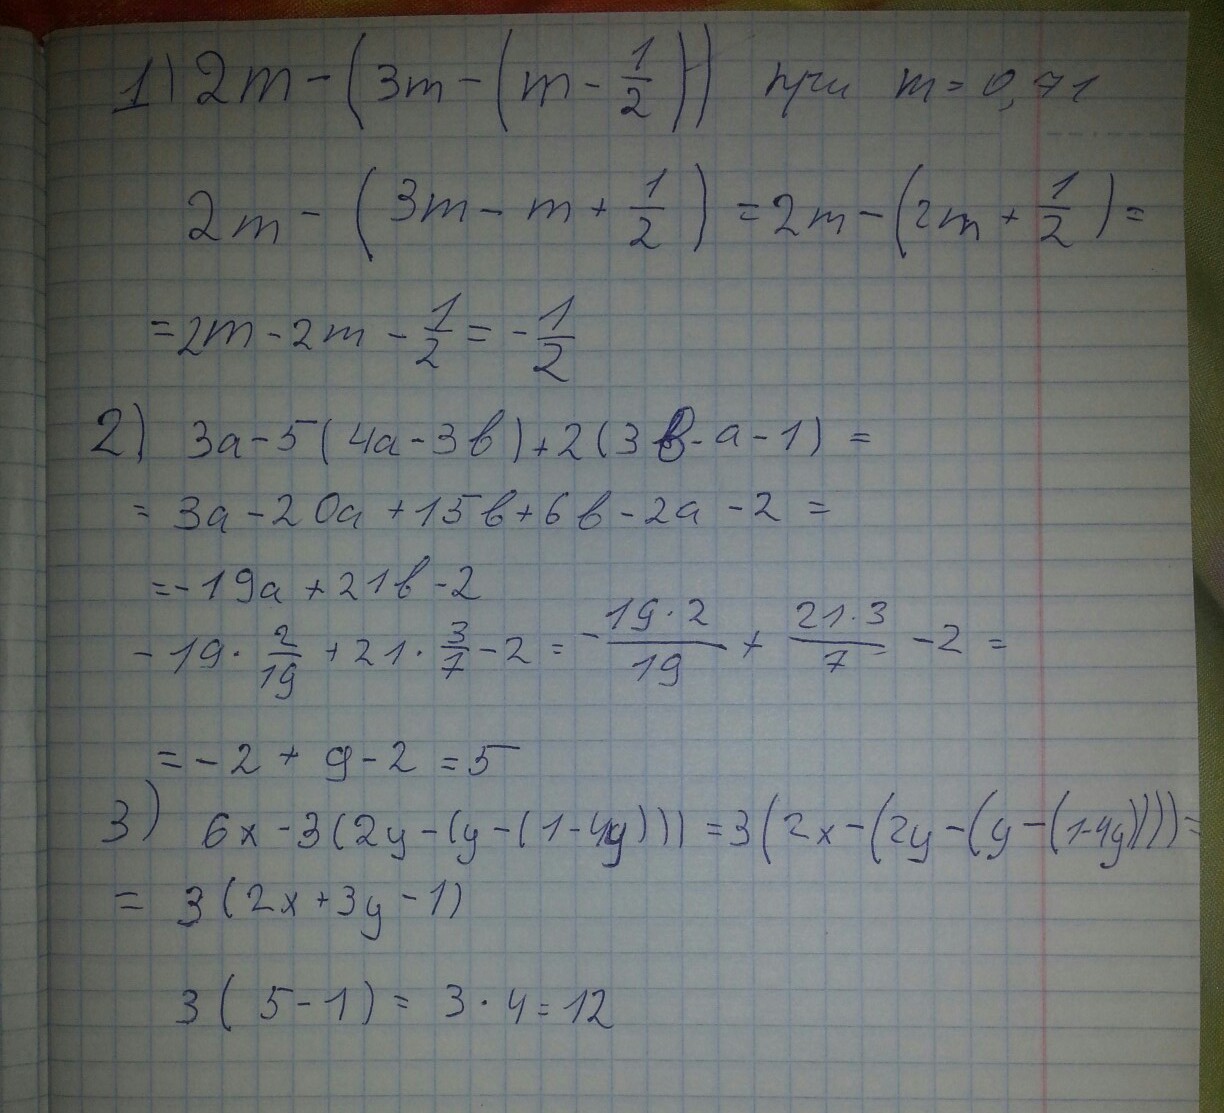 1) 2m - (3m - (m - 1/2)) при m = 0,71
2m - (3m - m + 1/2) = 2m - (2m + 1/2) =
= 2m - 2m - 1/2 = - 1/2
2) 3a - 5(4a - 3b) + 2(3b - a - 1) =
= 3a - 20a + 15b + 6b - 2a - 2 =
= - 19a + 21b - 2
- 19 · 2/19 + 21 · 3/7 - 2 = - 19·2/19 + 21·3/7 - 2 =
= - 2 + 9 - 2 = 5
3) 6x - 3(2y - (y - (1 - 4y))) = 3(2x - (2y - (y - (1-4y)))) =
= 3(2x + 3y - 1)
3(5 - 1) = 3 · 4 = 12